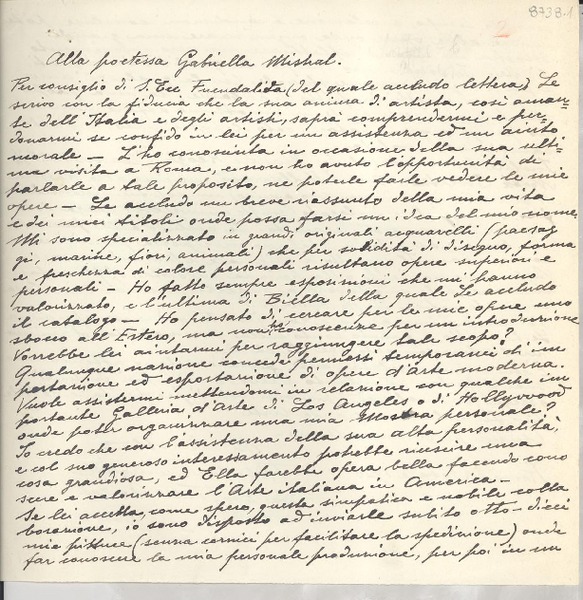 8738-1
2
Alla poetessa Gabriella Mistral.
Per consiglio di S. Ecc Fuendalida (del quale accludo lettera) Le
scrivo con la fiducia che la sua anima di artista, così aman-
te dell'Italia e degli artisti, saprà comprendermi e per-
donarmi se confido in lei per un assistenza ed un aiuto
morale — L'ho conosciuta in occasione della sua ulti-
ma visita a Roma, e non ho avuto l'opportunità di
parlarle a tale proposito, ne poterle farle vedere le mie
opere — Le accludo un breve riassunto della mia vita
e dei miei titoli onde possa farsi un idea del mio nome.
Mi sono specializzato in grandi originali acquarelli (paesag
gi, marine, fiori, animali) che per solidità di disegno, forma
e freschezza di colore personali risultano opere superiori e
personali — Ho fatto sempre esposizioni che mi hanno
valorizzato, e l'ultima di Biella della quale Le accludo
il catalogo — Ho pensato di cercare per le mie opere uno
sbocco all'Estero, ma non ho conoscenze per un introduzione
Vorrebbe lei aiutarmi per raggiungere tale scopo?
Qualunque nazione concede permessi temporanei di im
portazione ed esportazione di opere d'Arte moderna.
Vuole assistermi mettendomi in relazione con qualche im
portante Galleria d'Arte di Los Angeles o di Hollywood
onde poter organizzare una mia Mostra personale?
Io credo che con l'assistenza della sua alta personalità,
e col suo generoso interessamento potrebbe riuscire una
cosa grandiosa, ed Ella farebbe opera bella facendo cono
scere e valorizzare l'Arte italiana in America —
Se lei accetta, come spero, questa simpatica e nobile colla
borazione, io sono disposto ad inviarle subito otto-dieci
mie pitture (senza cornici per facilitare la spedizione) onde
far conoscere la mia personale produzione, per poi in un